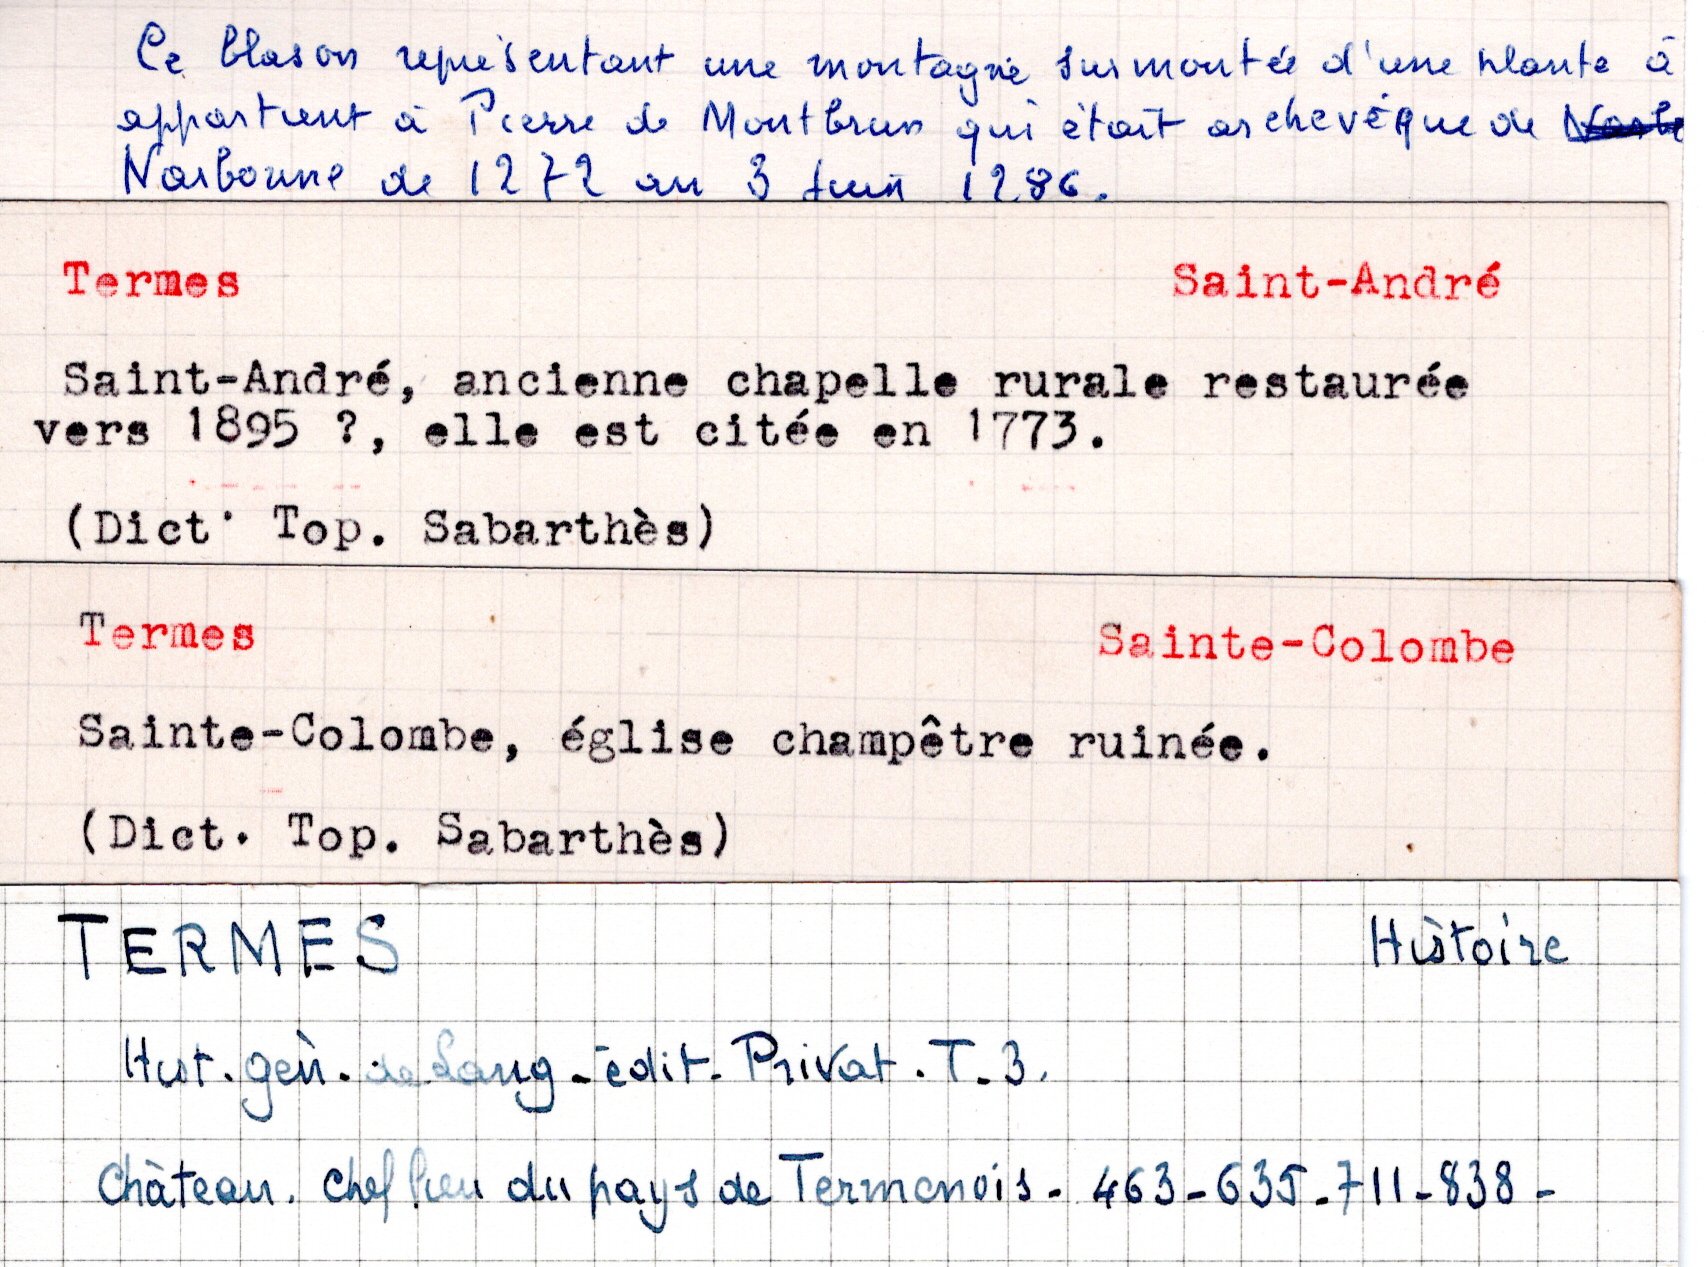 Ce blason représentant une montagne surmontée d'une plante à
appartient à Pierre de Montbrun qui était archevêque de
Narbonne de 1272 au 3 Juin 1286.
Termes Saint-André
Saint-André, ancienne chapelle rurale restaurée
vers 1895 ?, elle est citée en 1773.
(Dict. Top. Sabarthès)
Termes Sainte-Colombe
Sainte-Colombe, église champêtre ruinée.
(Dict. Top. Sabarthès)
TERMES Histoire
Hist. gén. de Lang - édit. Privat. T. 3.
Château. Chef lieu du pays de Termenois - 463 - 635 - 711 - 838 -